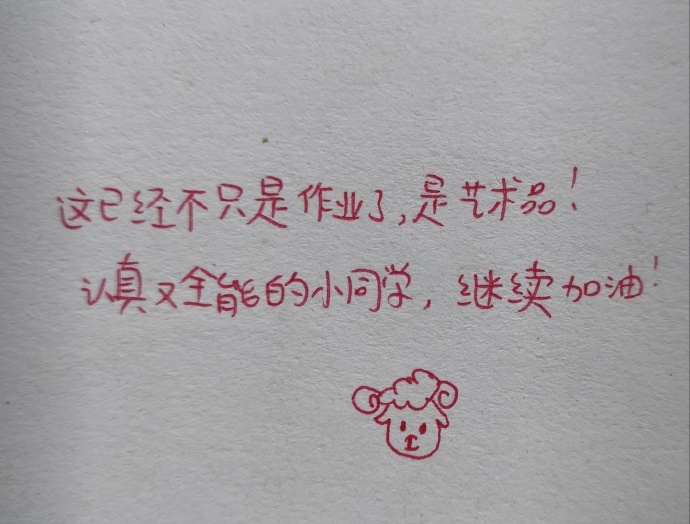 这已经不只是作业了,是艺术品!
认真又全能的小同学,继续加油!